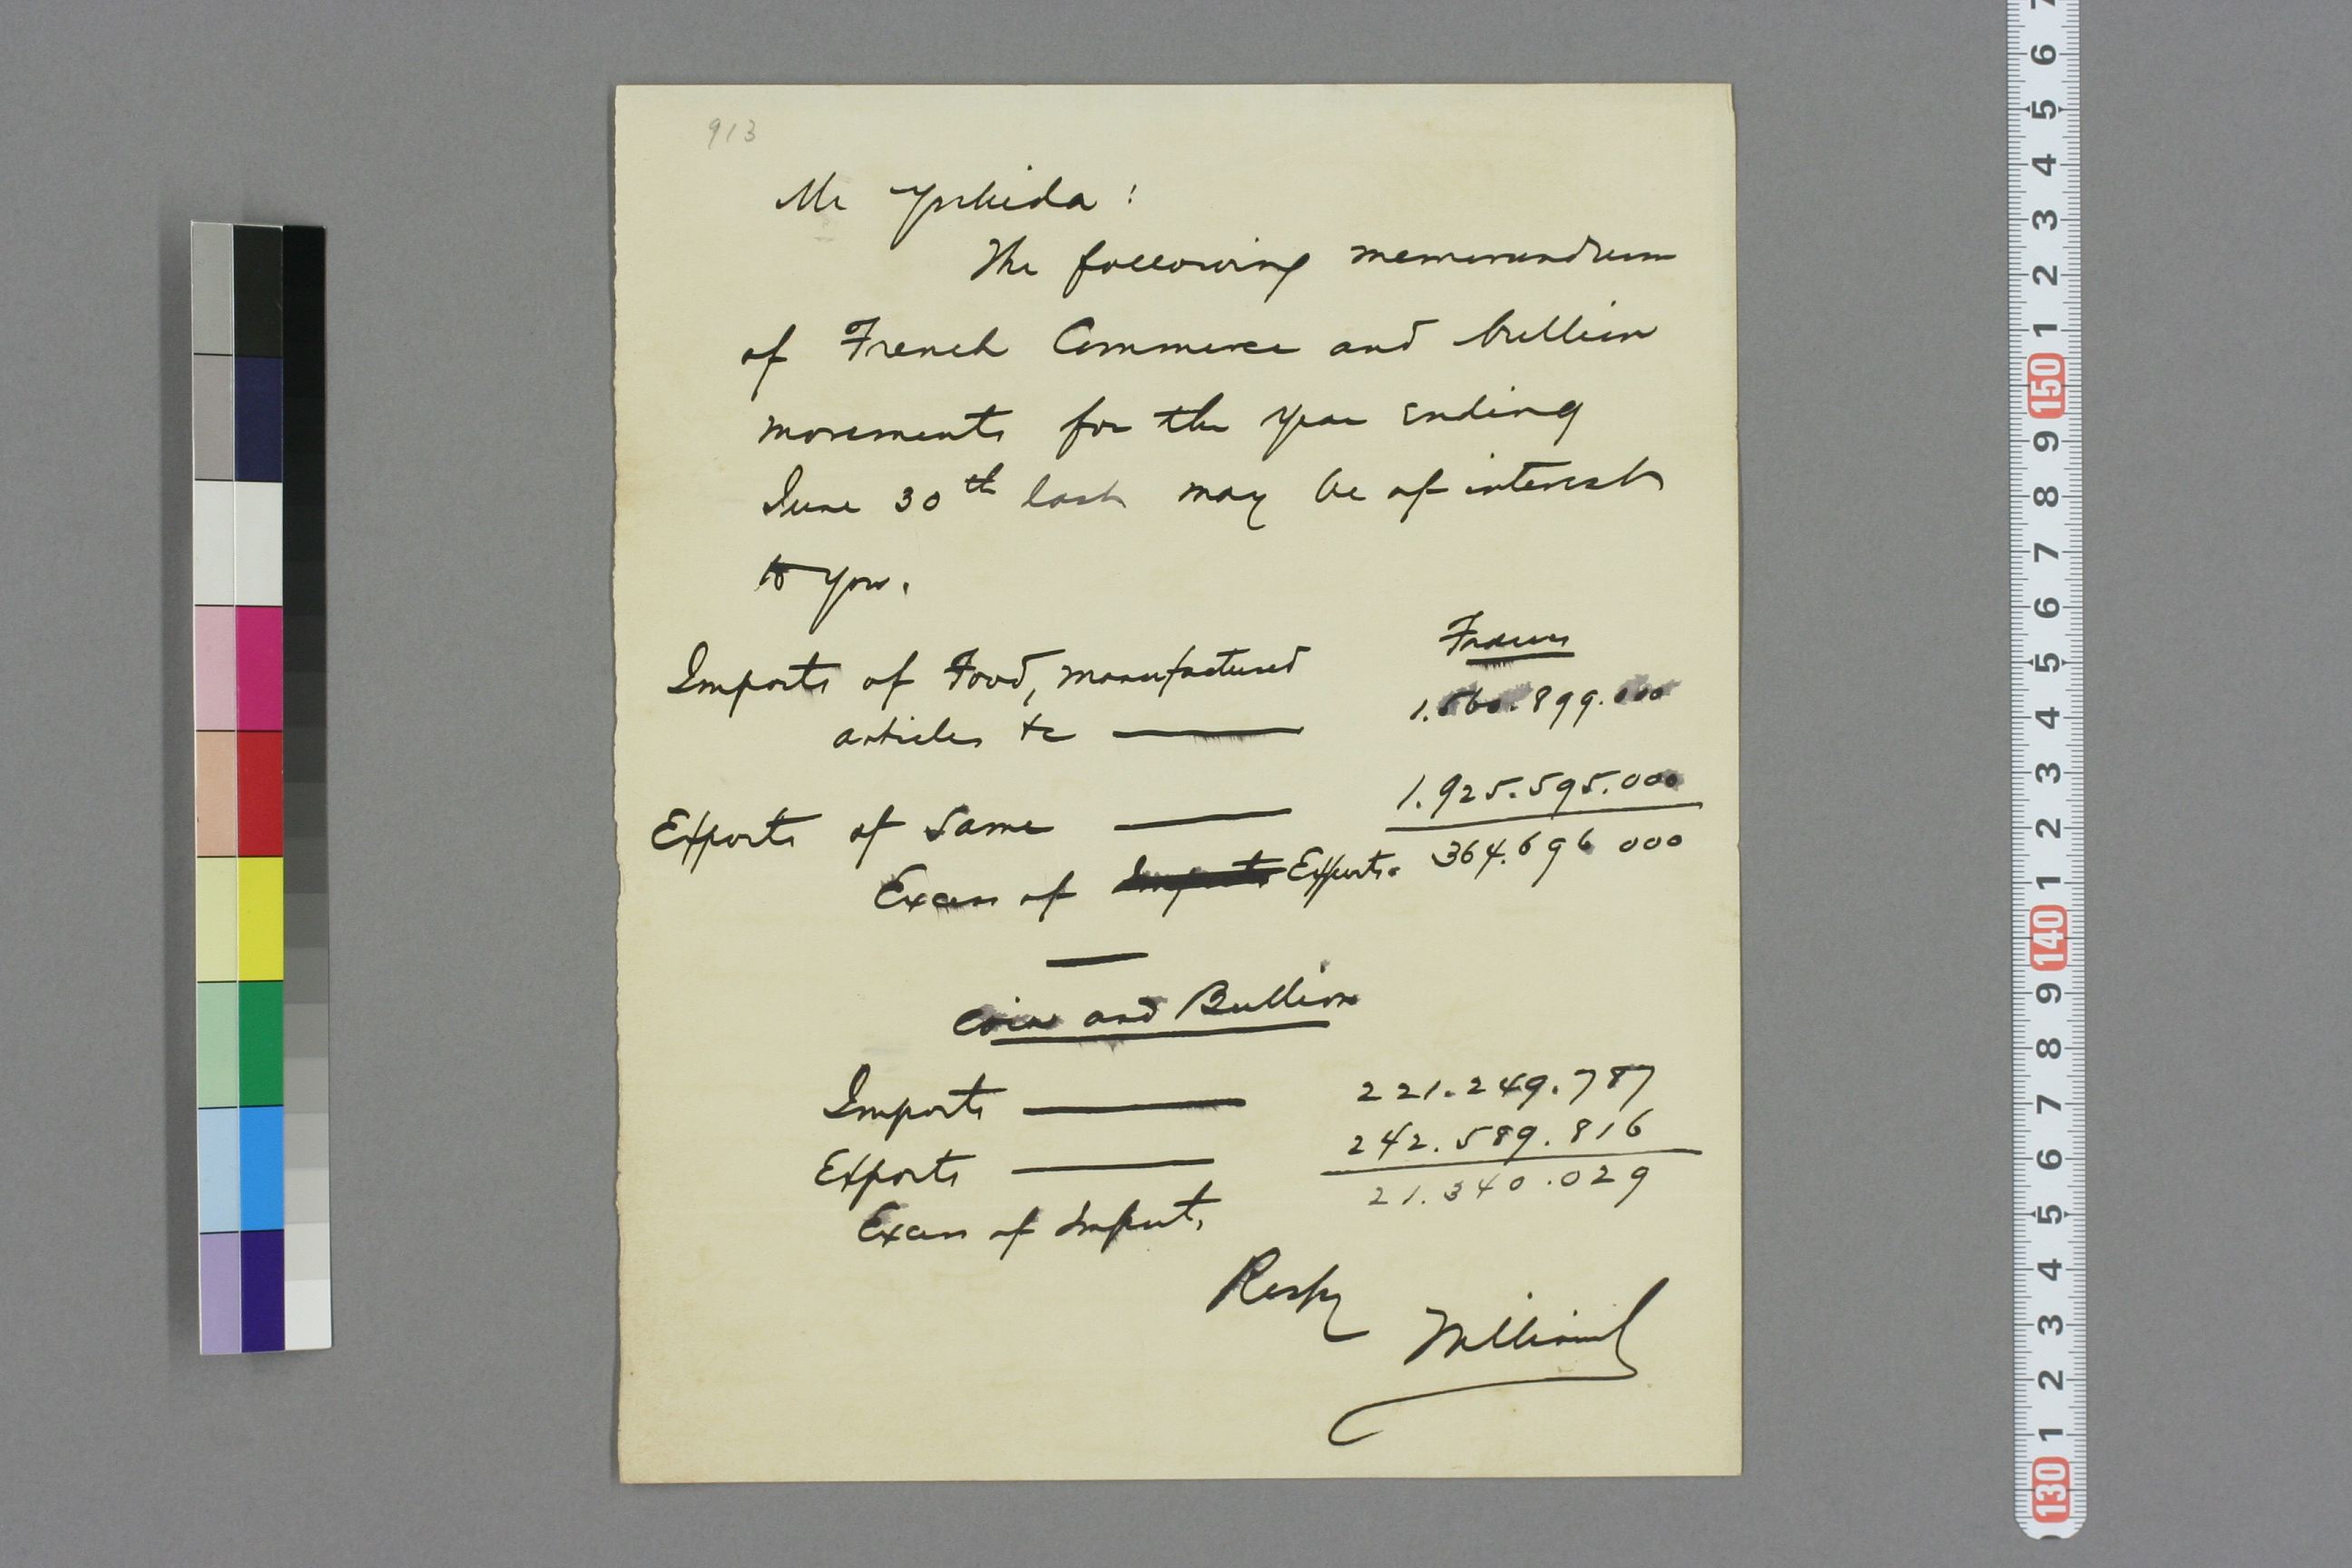 913
Mr Yoshida:
The following memorandum
of French Commerce and bullion
movements for the year ending
June 30th last may be of interest
to you.
Francs
Imports of Food, manufactured
articles &c — 1.560.899.000
Exports of Same — 1.925.595.000
Excess of Imports Exports. 364.696 000
Coin and Bullion
Imports — 221.249.787
Exports — 242.589.816
Excess of Imports 21.340.029
Respy
7
6
5
4
3
2
1
150
9
8
7
6
5
4
3
2
1
140
9
8
7
6
5
4
3
2
1
130